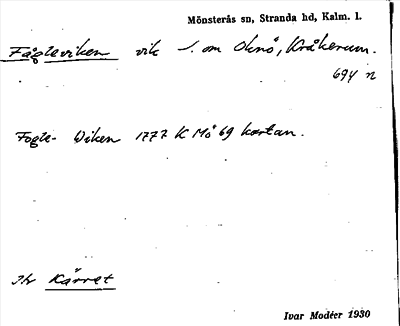 Mönsterås sn, Stranda hd, Kalm. l.
Fågleviken vik S. om Oknö, Kråkerum.
694 n
Fogle- Wiken 1777 K Mö 69 kartan.
Kärret
Ivar Modéer 1930